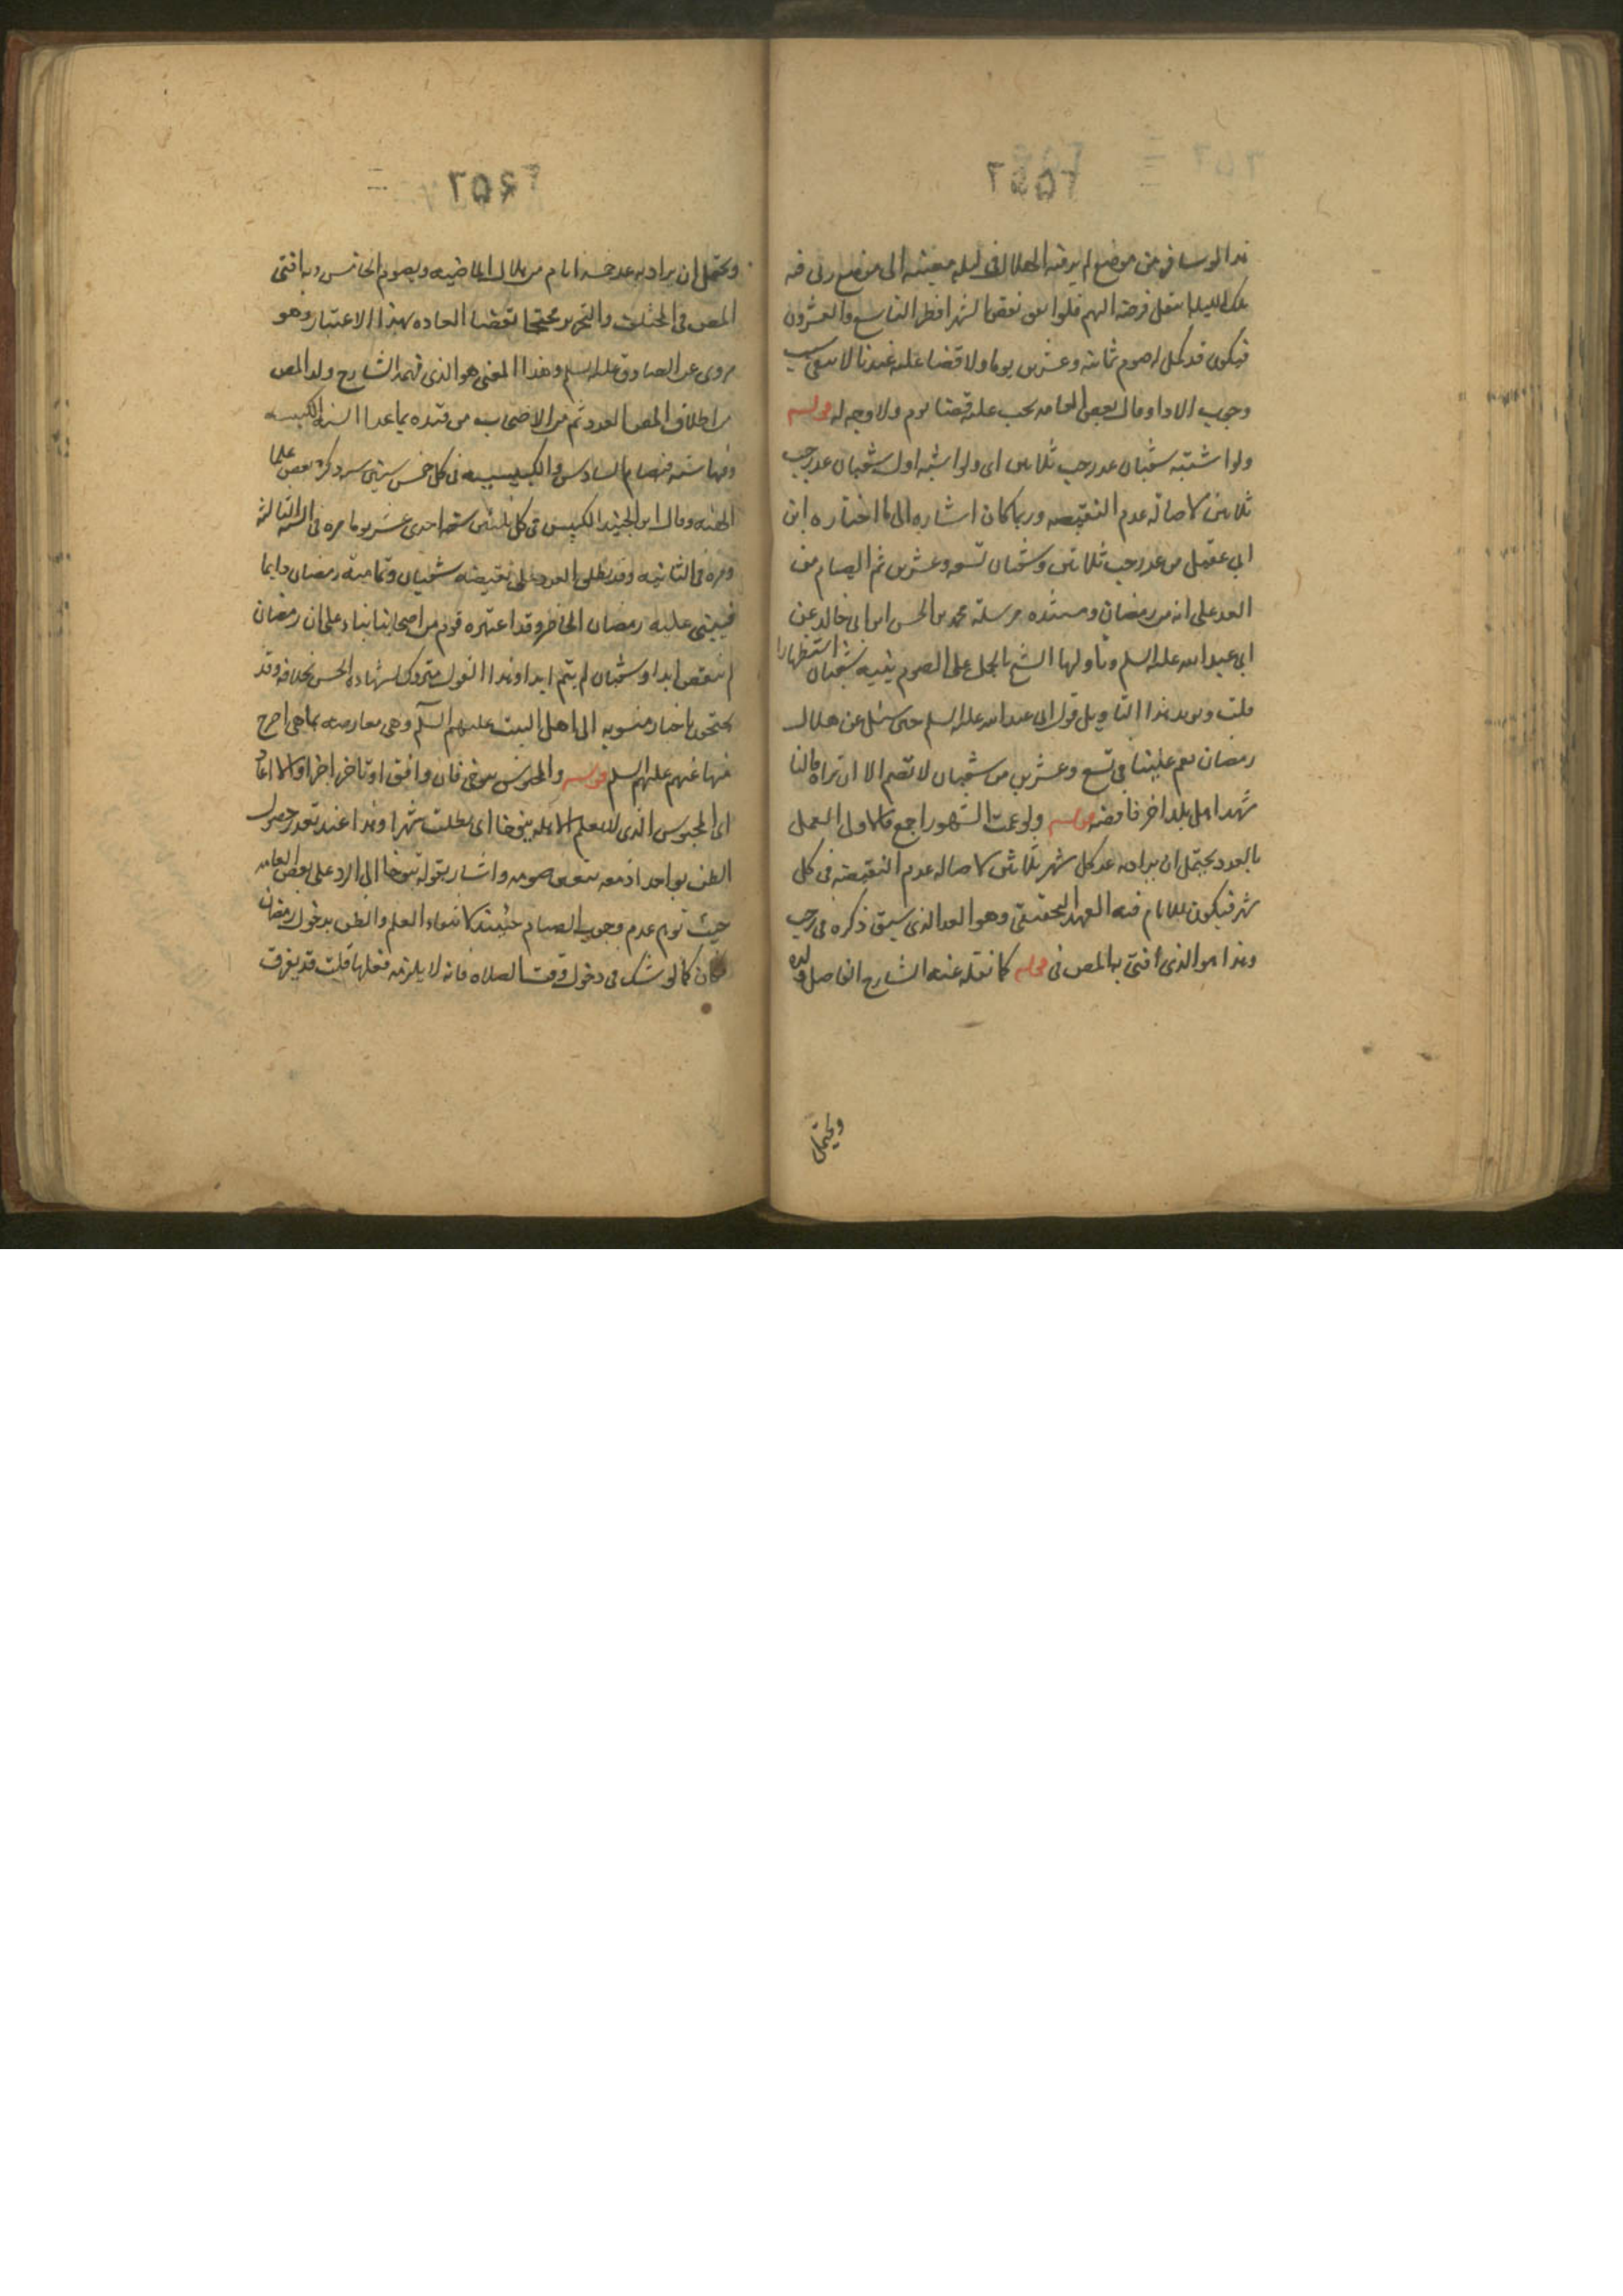 هذا لو سافر من موضع لم ير فيه الهلال في ليله معينه الى موضع رئي فيه
تلك الليله انتقل فرضه اليهم فلو اتفق نقص الشهر افطر التاسع والعشرون
فيكون قد كمل له صوم ثمانيه وعشرين يوما ولا قضا عليه عندنا لا سبب
وجوب الادا وقال بعض العامه يجب عليه قضا يوم ولا وجه له قوله
ولو اشتبه شعبان عد رجب ثلاثين اى ولو اشتبه اول شعبان عد رجب
ثلاثين لاصاله عدم النقيصه وربما كان اشاره الى ما اختاره ابن
ابي عقيل من عد رجب ثلاثين وشعبان تسعه وعشرين ثم الصيام من
العد على انه من رمضان ومستنده مرسله محمد بن الحسن ابن ابي خالد عن
ابي عبد الله عليه السلم وتاولها الشيخ بالحمل على الصوم بنيه شعبان استظهارا
قلت ويويد هذا التاويل قول ابي عبد الله عليه السلم حين سئل عن هلال
رمضان يغم علينا في تسع وعشرين من شعبان لا تصم الا ان تراه فان
شهد اهل بلد اخر فاقضه قوله ولو غمت الشهور اجمع فالاولى العمل
بالعدد يحتمل ان يراد به عد كل شهر ثلاثين لاصاله عدم النقيصه في كل
شهر فيكون اللام فيه للعهد التحقيقي وهو العد الذي سبق ذكره في رجب
وهذا هو الذي افتى به المص في كما نقله عنه الشارح الفاضل ولده
ويحتمل
ويحتمل ان يراد به عد خمسه ايام من هلال الماضيه ويصوم الخامس وبه افتى
المص في المختلف والتحرير محتجا بقضا العاده بهذا الاعتبار وهو
مروى عن الصادق عليه السلم وهذا المعنى هو الذي فهمه الشارح ولد المص
من اطلاق المص العدد ثم من الاصحاب من قيده بما عدا السنه الكبيسه
وفيها سته فيصام السادس والكبيسه في كل خمس سنين مره ذكره بعض علما
الهيئه وقال ابن الجنيد الكبيس في كل ثلثين سنه احدى عشر يوما مره في السنه الثالثه
ومره في الثانيه وقد يطلق العدد على نقيصه شعبان وتماميه رمضان دايما
فيبنى عليه رمضان الحاضر وقد اعتبره قوم من اصحابنا بناء على ان رمضان
لم ينقص ابدا وشعبان لم يتم ابدا وهذا القول متروك لشهاده الحس بخلافه وقد
يحتجون باخبار منسوبه الى اهل البيت عليهم السلم وهي معارضه بما هي اصرح
منها عنهم عليهم السلم قوله والمحبوس يتوخى فان وافق او تاخر اجزا والا اعاد
اى المحبوس الذى لا يعلم الاهله يتوخا اى يطلب شهرا وهذا عند تعذر حصول
الظن بواحد اذ معه يتعين صومه واشار بقوله يتوخا الى الرد على بعض العامه
حيث توهم عدم وجوب الصيام حينئذ لانتفاء العلم والظن بدخول رمضان
فكان كما لو شك في دخول وقت الصلاه فانه لا يلزمه فعلها قلت قد يفرق